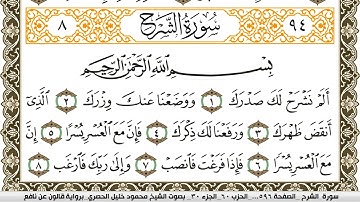 ٩٤ سُورَةُ الشَّرْحِ ٨
بِسْمِ اللَّهِ الرَّحْمَٰنِ الرَّحِيمِ
أَلَمْ نَشْرَحْ لَكَ صَدْرَكَ ١ وَوَضَعْنَا عَنكَ وِزْرَكَ ٢ الَّذِي
أَنقَضَ ظَهْرَكَ ٣ وَرَفَعْنَا لَكَ ذِكْرَكَ ٤ فَإِنَّ مَعَ الْعُسْرِ يُسْرًا ٥ إِنَّ
مَعَ الْعُسْرِ يُسْرًا ٦ فَإِذَا فَرَغْتَ فَانصَبْ ٧ وَإِلَىٰ رَبِّكَ فَارْغَب ٨
سورة الشرح _الصفحة ٥٩٦_... الحزب ٦٠_الجزء ٣٠_ بصوت الشيخ محمود خليل الحصري_برواية قالون عن نافع